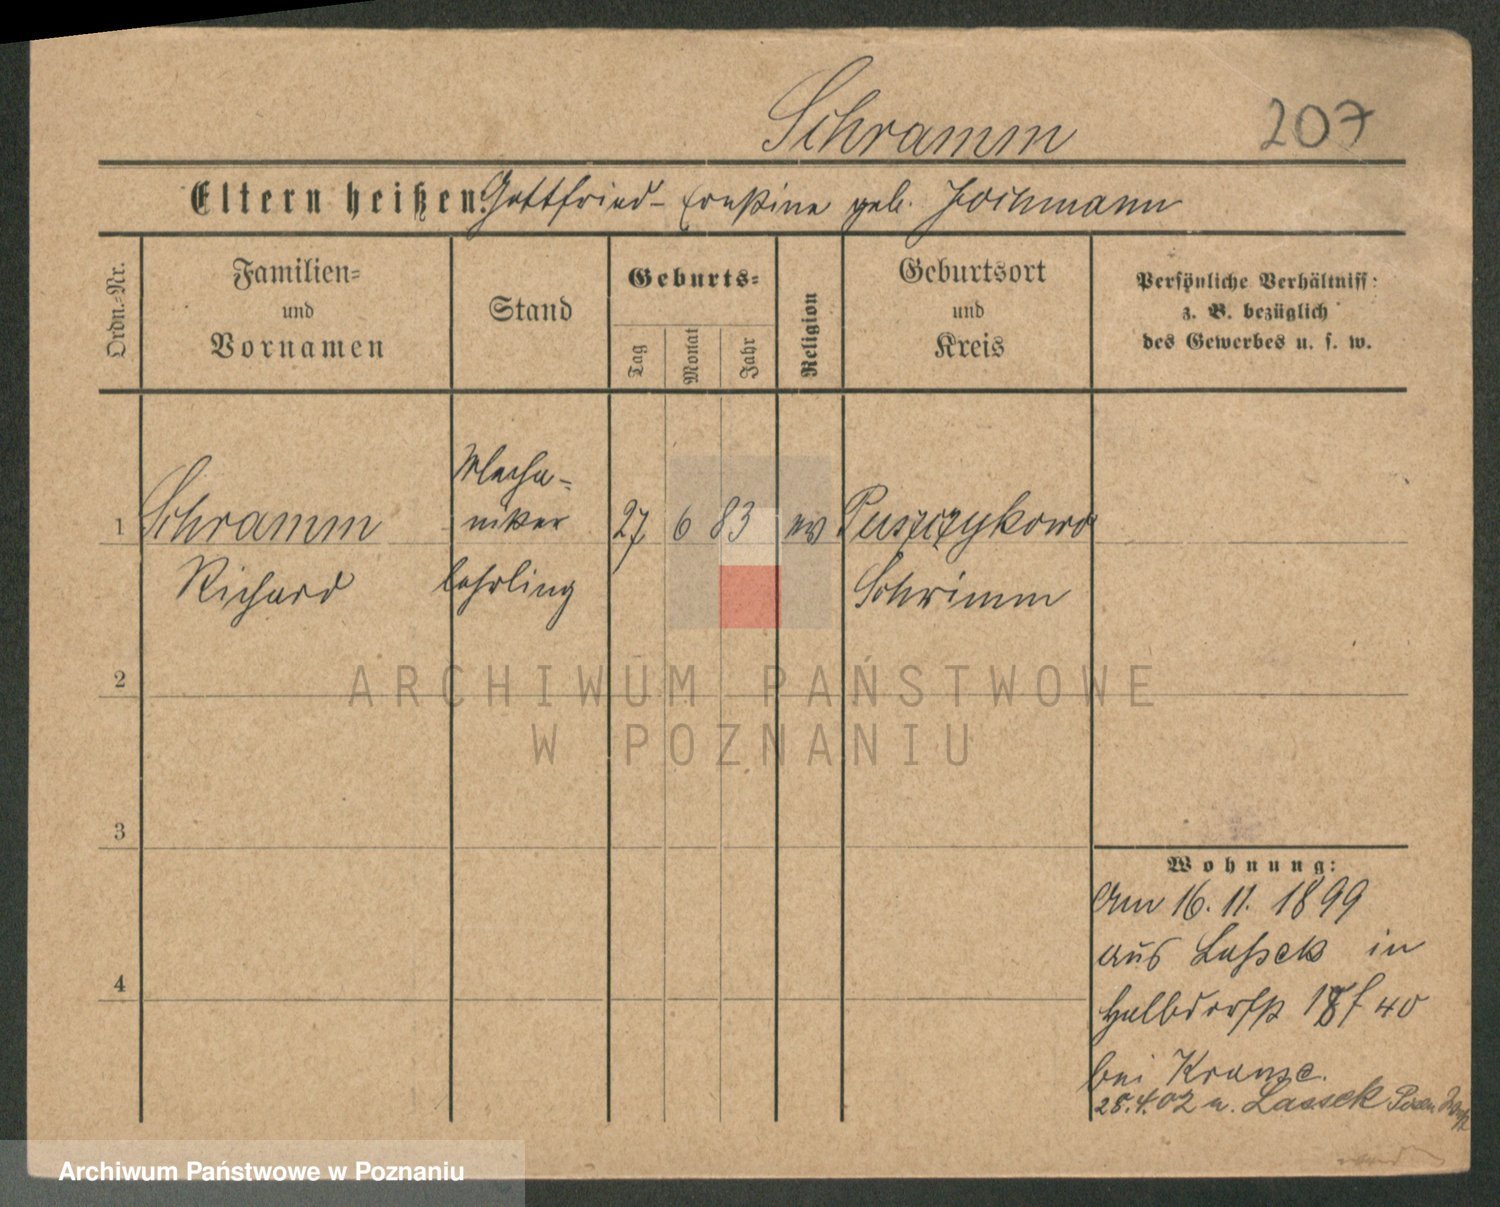 Schramm
207
Eltern heißen: Gottfried - Ernstine geb. Jochmann
Ordn.=Nr.
Familien=
und
Vornamen
Stand
Geburts=
Tag
Monat
Jahr
Religion
Geburtsort
und
Kreis
Persönliche Verhältniss:
z. B. bezüglich
des Gewerbes u. s. w.
1 Schramm
Richard
Mecha-
niker
lehrling
27 6 83 ev
Puszczykowo
Schrimm
2
3
4
Wohnung:
Am 16. 11. 1899
aus Lassek in
Halbdorfst 40
bei Krause.
28.4.02 n. Lassek Posen
ARCHIWUM PAŃSTWOWE
W POZNANIU
Archiwum Państwowe w Poznaniu